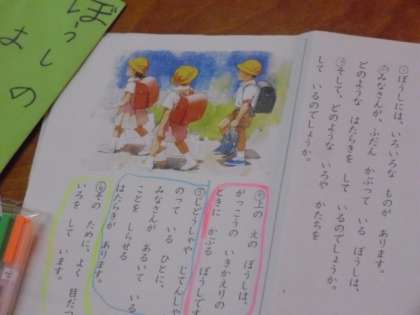 ぼうしの
よ
①ぼうしには、いろいろな ものが あります。
②みなさんが、ふだん かぶって いる ぼうしは、
どのような はたらきを して いるのでしょうか。
③そして、どのような いろや かたちを
して いるのでしょうか。
④上の えの ぼうしは、
がっこうの いきかえりの
ときに かぶる ぼうしです
⑤じどうしゃや じてんしゃ
のって いる ひとに、
みなさんが あるいて いる
ことを しらせる
はたらきが あります。
⑥その ために、よく 目だつ
いろを して います。